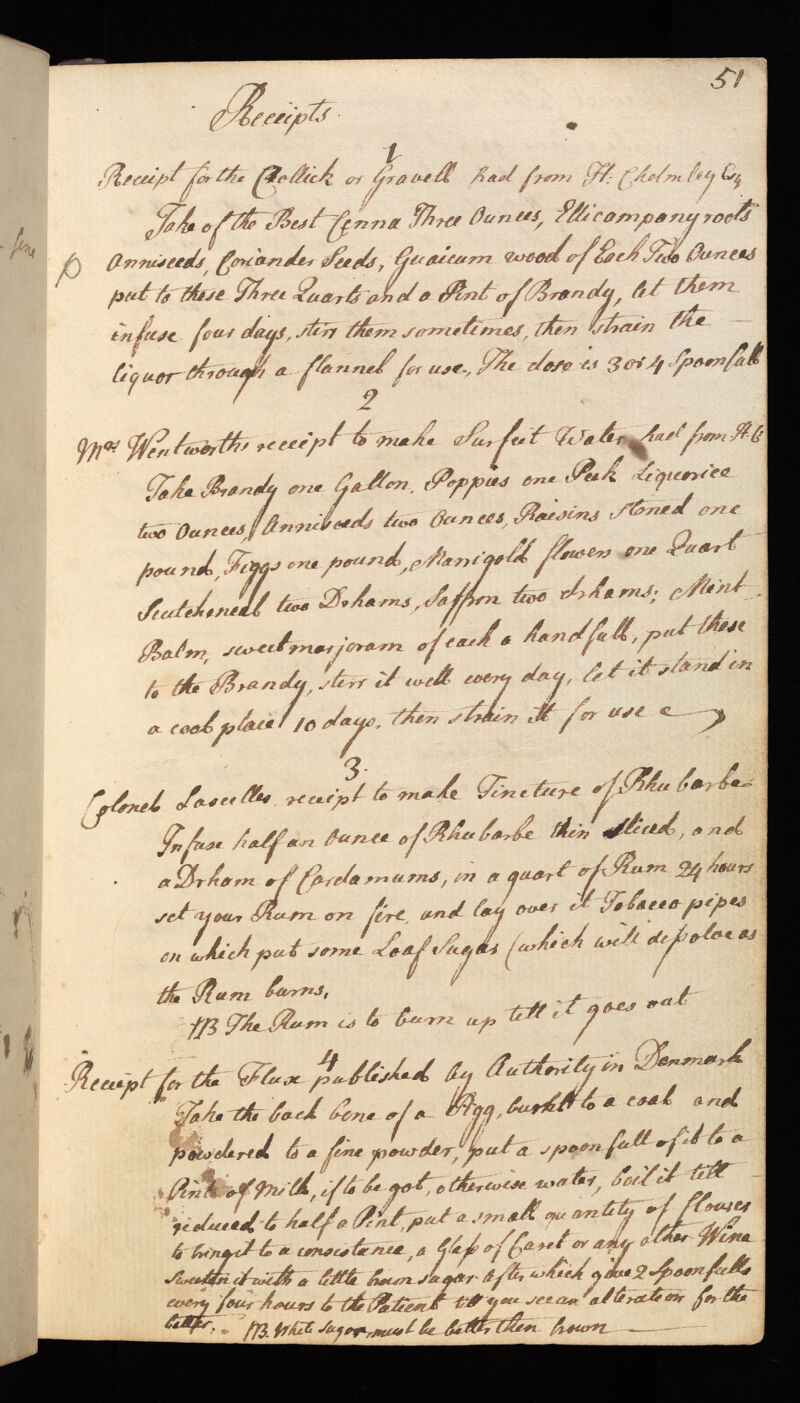 51
Receipts
1
Receipt for the Chollick or Gravell had from H: Cholmley Esq
Take of the Best Cenna Three Ounces, Ellicampany roots
Anniseeds, Coriander Seeds, Guaicum wood of Each Two Ounces
put to these Three Quarts and a Pint of Brandy, let them
infuse four days, stirr them sometimes, then strain the
liquor through a flannel for use, The dose is 3 or 4 Spoonfull
2
Mrs Wentworths receipt to make Surfeit Water had from H C
Take Brandy one Gallon, Poppies one Peck Liquorice
two Ounces, Anniseeds two Ounces, Raisins stoned one
pound, Figgs one pound, Marigold flowers one Quart
Scutcheneal two Drhams, Saffron two drhams; Mint
Balm, sweet marjoram of each a handfull, put these
to the Brandy, stirr it well every day, let it stand in
a cool place 10 days, then strain it for use
3.
Colonel Lascelles receipt to make Tincture of Rhubarbe
Infuse half an Ounce of Rhubarbe thin sliced, and
a Drham of Cardamums, in a quart of Rum 24 hours
set your Rum on fire, and lay over it Tobacco pipes
on which put some Loaf Sugar (which will dissolve as
the Rum burns,
NB The Rum is to burn up till it goes out
4
Receipt for the Flux published by Authority in Denmark
Take the back bone of a Pigg, burnt to a coal and
powdered to a fine powder, put a spoonfull of it to a
Pint of Milk, if to be got, otherwise water, boil it till
reduced to half a Pint, put a small quantity of flower
to bring it to a consistance, a Glass of Caret or any other Wine
Sweeten it with a little brown sugar after which give 2 Spoonfulls
every four hours to the Patient till you see an alteration for the
better. NB. White sugar must be better then brown
fine